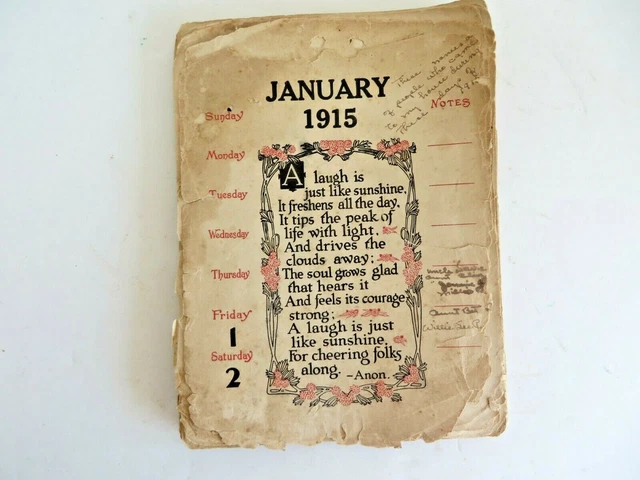 JANUARY
1915
These names
of people who came
to my house during
these days of
1915
Sunday
NOTES
Monday
Tuesday
Wednesday
Thursday
Friday
1
Saturday
2
A laugh is
just like sunshine,
It freshens all the day,
It tips the peak of
life with light,
And drives the
clouds away;
The soul grows glad
that hears it
And feels its courage
strong;
A laugh is just
like sunshine,
For cheering folks
along. -Anon.
uncle
Aunt
Willie